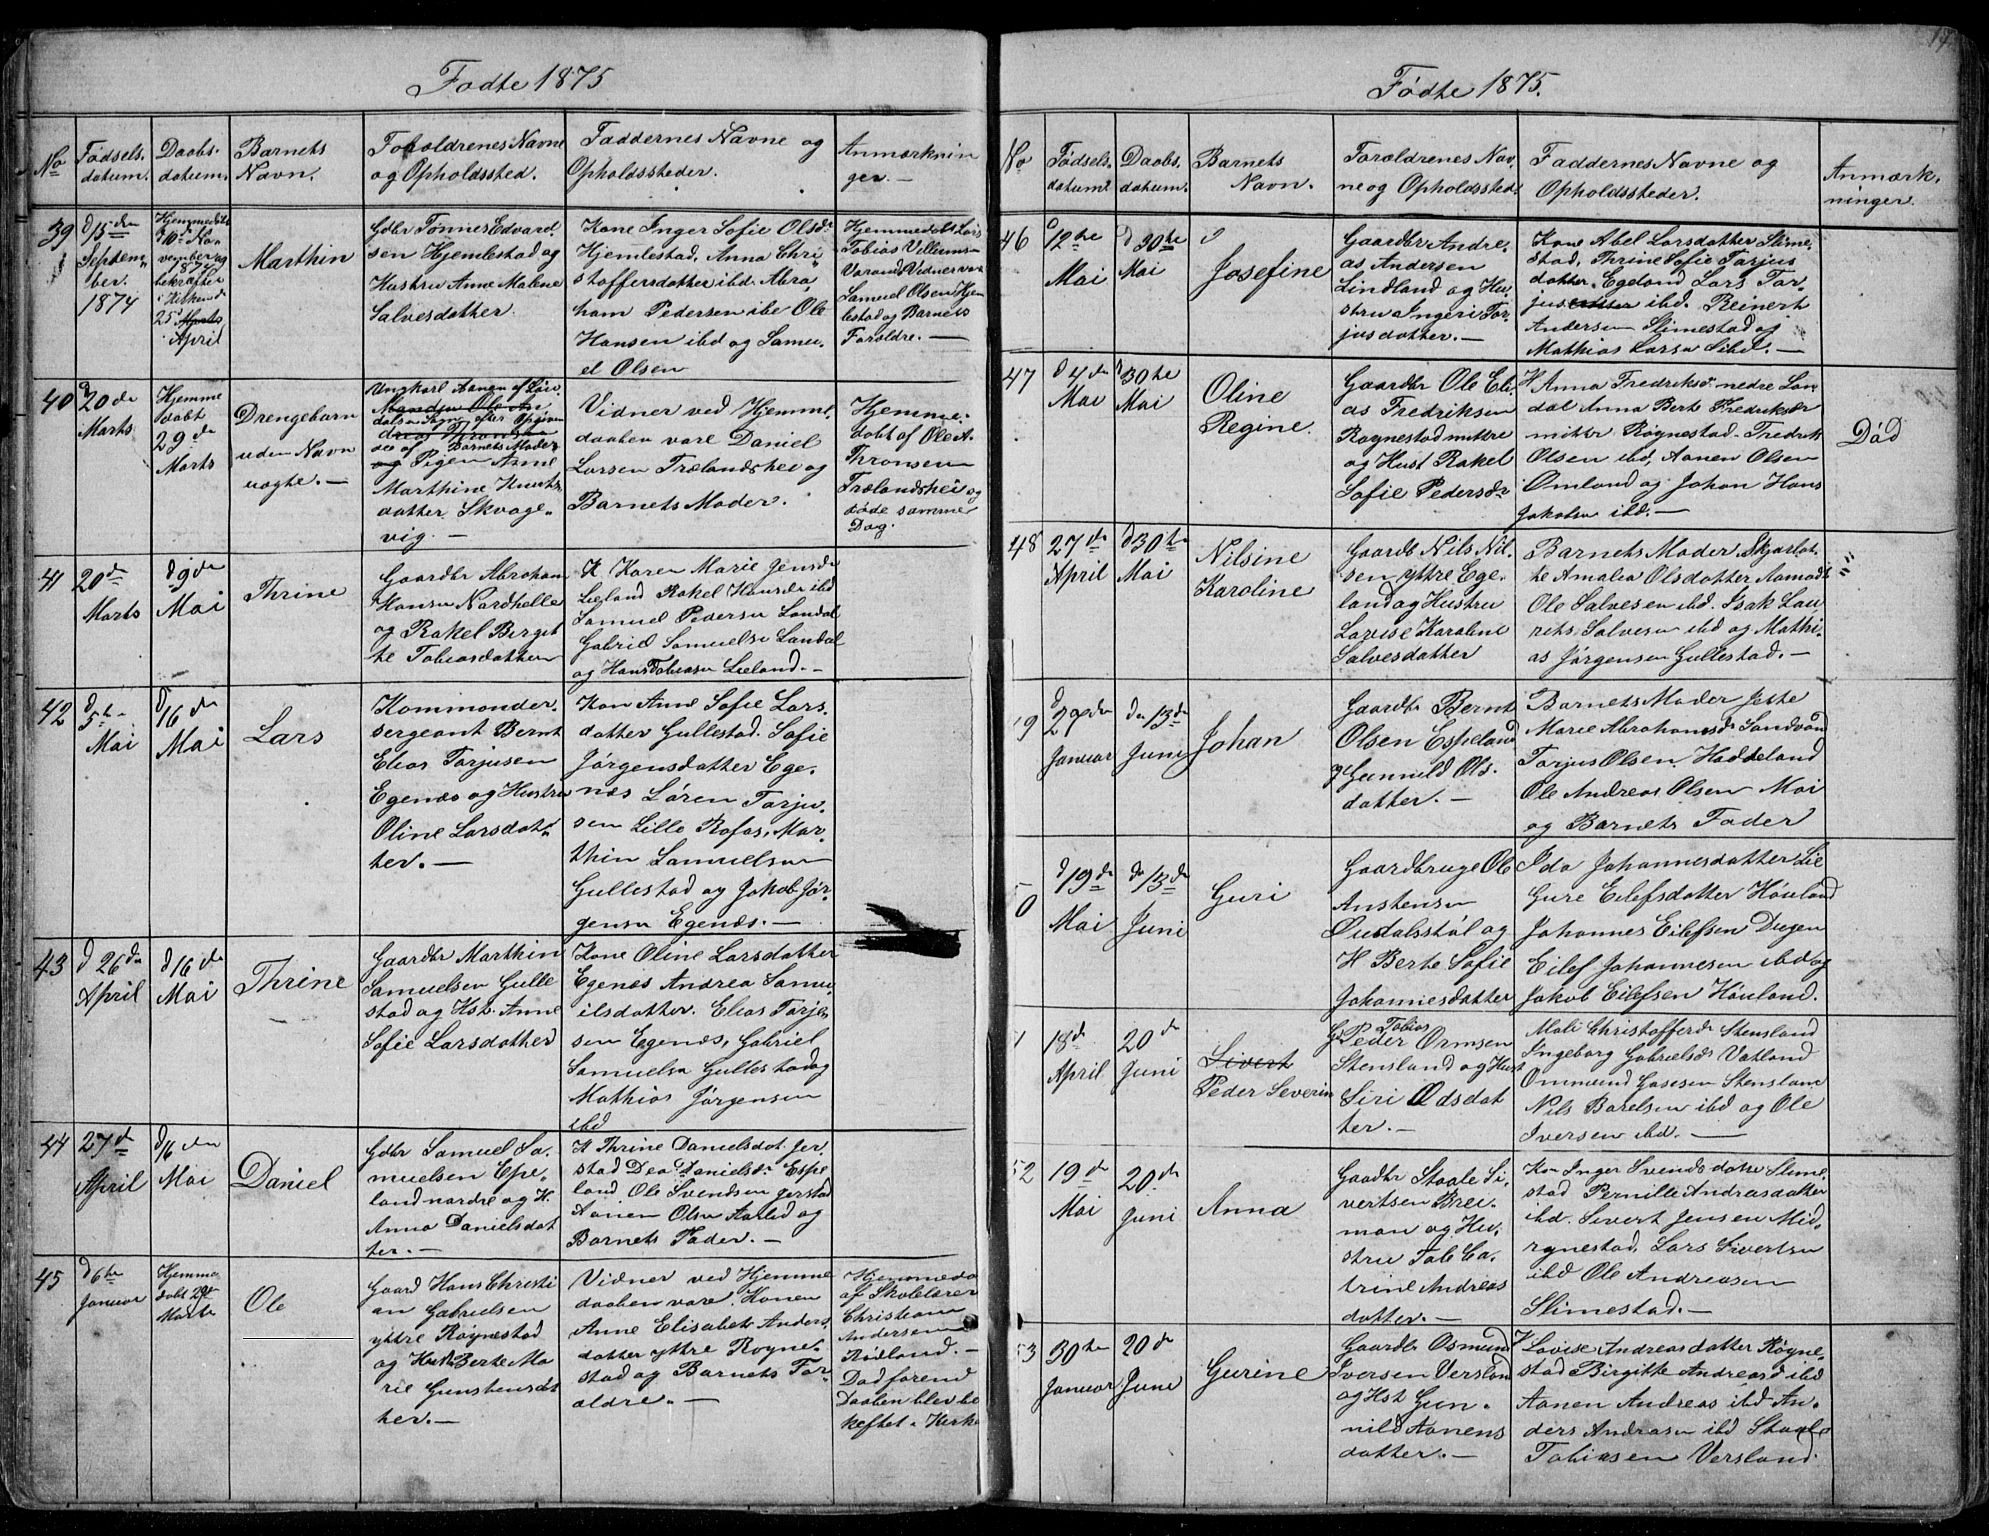 Fødte 1875
No
Fødsels-
datum.
Daabs-
datum.
Barnets
Navn.
Forældrenes Navne
og Opholdssted.
Faddernes Navne og
Opholdssteder.
Anmærknin
ger.—
39
d 15de
Septem,
ber.
1874
Hjemmedøbt
10de No-
vember og
bekræftet
i Kirken d
25 Marts
April
Marthin
Gdbr Tønnes Edvard
sen Hjemlestad og
Hustru Anne Malene
Salvesdatter.
Kone Inger Sofie Olsdr
Hjemlestad, Anna Chri
stoffersdatter ibd. Abra
ham Pedersen ibd Ole
Hansen ibd og Samu-
el Olsen
Hjemmedøbt Lars
Tobias Villems-
Vidner var
Samuel Olsen Hjem
lestad og Barnets
Forældre.—
40
d 20de
Marts
Hjemme
døbt
29de
Marts
Drengebarn
uden Navn
uægte.—
Ungkarl Aanen
Opgiven
Barnets Moder
og Pigen Anne
Marthine Knuts
datter Skvage-
vig.—
Vidner ved Hjemme
daaben vare Daniel
Larsen Trælandshei og
Barnets Moder.
Hjemme-
døbt af Ole A.
Thronsen
Trælandshei og
døde samme
Dag.
41
20de
Marts
d 9de
Mai
Thrine
Gaardbr Abraham
Hansen Nordhelle
og Rakel Birgit
te Tobiasdatter
K Karen Marie Jensdr
Lieland Rakel Hansdr ibd
Samuel Pedersen Landal
Gabriel Samuelsen Landal
og Hans Tobiasen Lieland.—
42
d 5te
Mai
d 16de
Mai
Lars
Kommander-
sergeant Bernt
Elias Tarjusen
Egenæs og Hustru
Oline Larsdat-
ter.—
Kon Anne Sofie Lars-
datter Gullestad. Sofie
Jørgensdatter Ege-
næs Søren Tarju-
sen Lille Rafos, Mar
thin Samuelsen
Gullestad og Jakob Jør-
gensen Egenæs.—
43
d 26de
April
d 16de
Mai
Thrine
Gaardbr Marthin
Samuelsen Gulle
stad og Hst. Anne
Sofie Larsdatter
Kone Oline Larsdatter
Egenæs Andrea Samu-
elsdatter. Elias Tarje-
sen Egenæs, Gabriel
Samuelsen Gullestad og
Mathias Jørgensen
ibd
44
27d
April
d 16de
Mai
Daniel
Gdbr Samuel Sa-
muelsen Espe-
land nordre og H.
Anna Danielsdat
ter.—
K Thrine Danielsdat. Jer-
stad Dea Danielsdr Espe
land Ole Svendsen Jerstad
Aanen Olsen og
Barnets Fader.—
45
d 6te
Januar
Hjemme-
døbt 29de
Marts
Ole
Gaard Hans Christi
an Gabrielsen
yttre Røynestad
og Hust Berte Ma
rie Gunstensdt
ter.—
Vidner ved Hjemme
daaben vare. Konen
Anne Elisabet Anders-
datter yttre Røyne-
stad og Barnets For-
ældre.—
Hjemmedø
af Skolelærer
Christian
Andersen
Rødland.—
Død førend
Daaben blev be
kræftet i Kirke
17
Fødte 1875.
No
Fødsels-
datum.
Daabs-
datum.
Barnets
Navn.
Forældrenes Nav-
ne og Opholdssted.
Faddernes Navne og
Opholdssteder.
Anmærk-
ninger.
46
d 12te
Mai
d 30te
Mai
Josefine
Gaardbr Andre-
as Andersen
Lindland og Hu-
stru Ingeri Tar-
jusdatter.—
Kone Abel Larsdatter Slime-
stad, Thrine Sofie Tarjus
datter. Egeland Lars Tar-
jusdatter ibd. Reinert
Andersen Slimestad og
Mathias Larsen ibd.—
47
d 4de
Mai
d 30te
Mai
Oline
Regine.
Gaardbr Ole Eli-
as Fredriksen
Røynestad mittre
og Hust Rakel
Sofie Pedersdr
K Anna Fredriksdr nedre Lan
dal Anna Berte Fredriksdr
mittre Røynestad. Fredrik
Olsen ibd, Aanen Olsen
Omland og Johan Hans
Jakobsen ibd.—
Død
48
27de
April
d 30te
Mai
Nilsine
Karoline
Gaardb Nils Nil-
sen yttre Ege-
land og Hustru
Lovise Karoline
Salvesdatter
Barnets Moder Skjarlot-
te Amalia Olsdatter Aamodt
Ole Salvesen ibd. Isak Lau
rits Salvesen ibd og Mathi-
as Jørgensen Gullestad.—
9
d 29de
Januar
de 13de
Juni
Johan
Gaardbr Bernt
Olsen Espeland
og Gunnild Ols-
datter.—
Barnets Moder Jette
Marie Abrahamsdr Sandvand
Tarjus Olsen Haddeland
Ole Andreas Olsen Moi
og Barnets Fader
50
d 19de
Mai
de 13de
Juni
Guri
Gaardbruge Ole
Anstensen
Øudalsstøl og
H Berte Sofie
Johannesdatter
Ida Johannesdatter Lie
Gure Eilefsdatter Houland
Johannes Eilefsen Dugen
Eilef Johannesen ibd og
Jakob Eilefsen Houland.
1
18de
April
20de
Juni
Sivert
Peder Severin
Tobias
G Peder Ormsen
Stensland og Hust
Siri Odsdat
ter.—
Mali Christoffersdr Stensland
Ingeborg Gabrielsdr Vatland
Ommund Stensland
Nils Barelsen ibd og Ole
Iversen ibd.—
52
19de
Mai
20de
Juni
Anna
Gaardbr Staale Si-
vertsen Brei-
man og Hu-
stru Tab Ca-
trine Andreas
datter.—
Kon Inger Svendsdatter Slime-
stad Pernille Andreasdatter
ibd. Sivert Jensen Mid-
rynestad. Lars Sivertsen
ibd Ole Andreasen
Slimestad.—
53
30te
Januar
20de
Juni
Gurine
Gaardbr Osmund
Iversen Versland
og Hst Gun-
nild Aanens
datter.—
K Lovise Andreasdatter Røyne-
stad Birgitte Andreasd ibd
Aanen Andreas ibd An-
ders Andreasen ibd Staale
Tobiasen Versland.